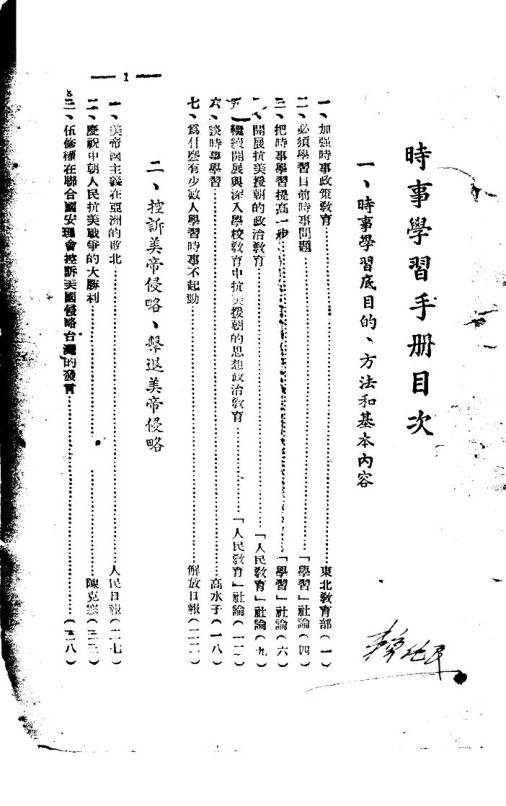 時事學習手册目次
一、時事學習底目的、方法和基本內容
一、加强時事政策敎育……東北敎育部(一)
二、必須學習目前時事問題……「學習」社論(四)
三、把時事學習提高一步……「學習」社論(六)
開展抗美援朝的政治敎育……「人民敎育」社論(九)
繼續開展與深入學校敎育中抗美援朝的思想政治敎育……「人民敎育」社論
六、談時事學習……高水子(一八)
七、爲什麽有少數人學習時事不起勁……解放日報(二二)
二、控訴美帝侵略、擊退美帝侵略
一、美帝國主義在亞洲的敗北……人民日報(二七)
二、慶祝中朝人民抗美戰爭的大勝利……陳克寒(三三)
三、伍修權在聯合國安理會控訴美國侵略台灣的發言……(三八)
— 1 —